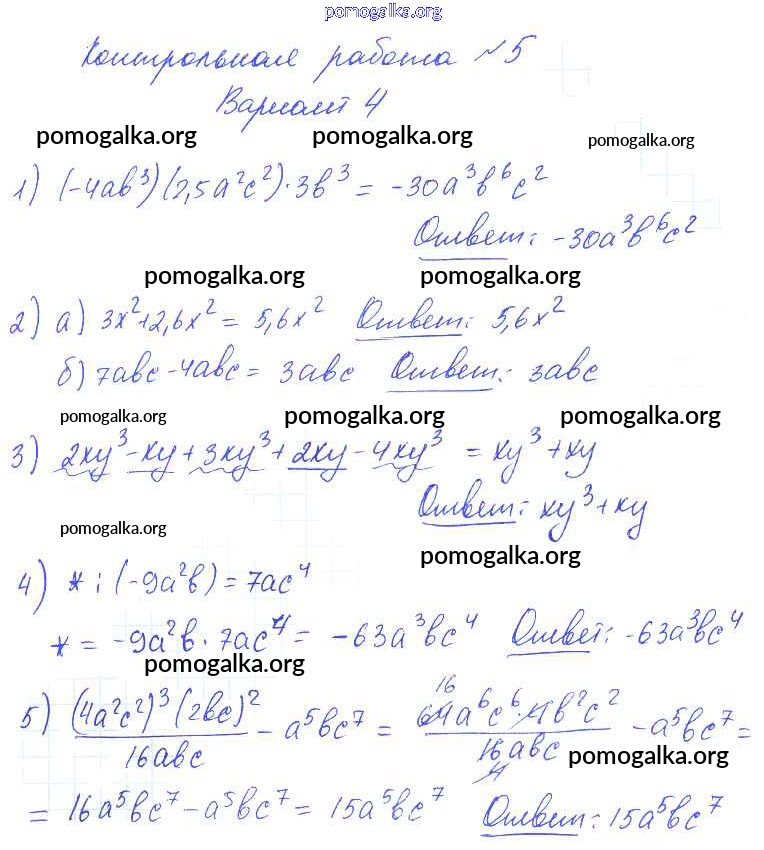 pomogalka.org
Контрольная работа №5
Вариант 4
pomogalka.org pomogalka.org pomogalka.org
1) (-4ab³)(2,5a²c²)·3b³ = -30a³b⁶c²
Ответ: -30a³b⁶c²
pomogalka.org pomogalka.org
2) а) 3x²+2,6x² = 5,6x² Ответ: 5,6x²
б) 7abc - 4abc = 3abc Ответ: 3abc
pomogalka.org pomogalka.org pomogalka.org
3) 2xy³ - xy + 3xy³ + 2xy - 4xy³ = xy³ + xy
Ответ: xy³ + xy
pomogalka.org pomogalka.org
4) * : (-9a²b) = 7ac⁴
* = -9a²b · 7ac⁴ = -63a³bc⁴ Ответ: -63a³bc⁴
pomogalka.org
5) (4a²c²)³(2bc)²/16abc - a⁵bc⁷ = 64a⁶c⁶·4b²c²/16abc - a⁵bc⁷ =
pomogalka.org
= 16a⁵bc⁷ - a⁵bc⁷ = 15a⁵bc⁷ Ответ: 15a⁵bc⁷